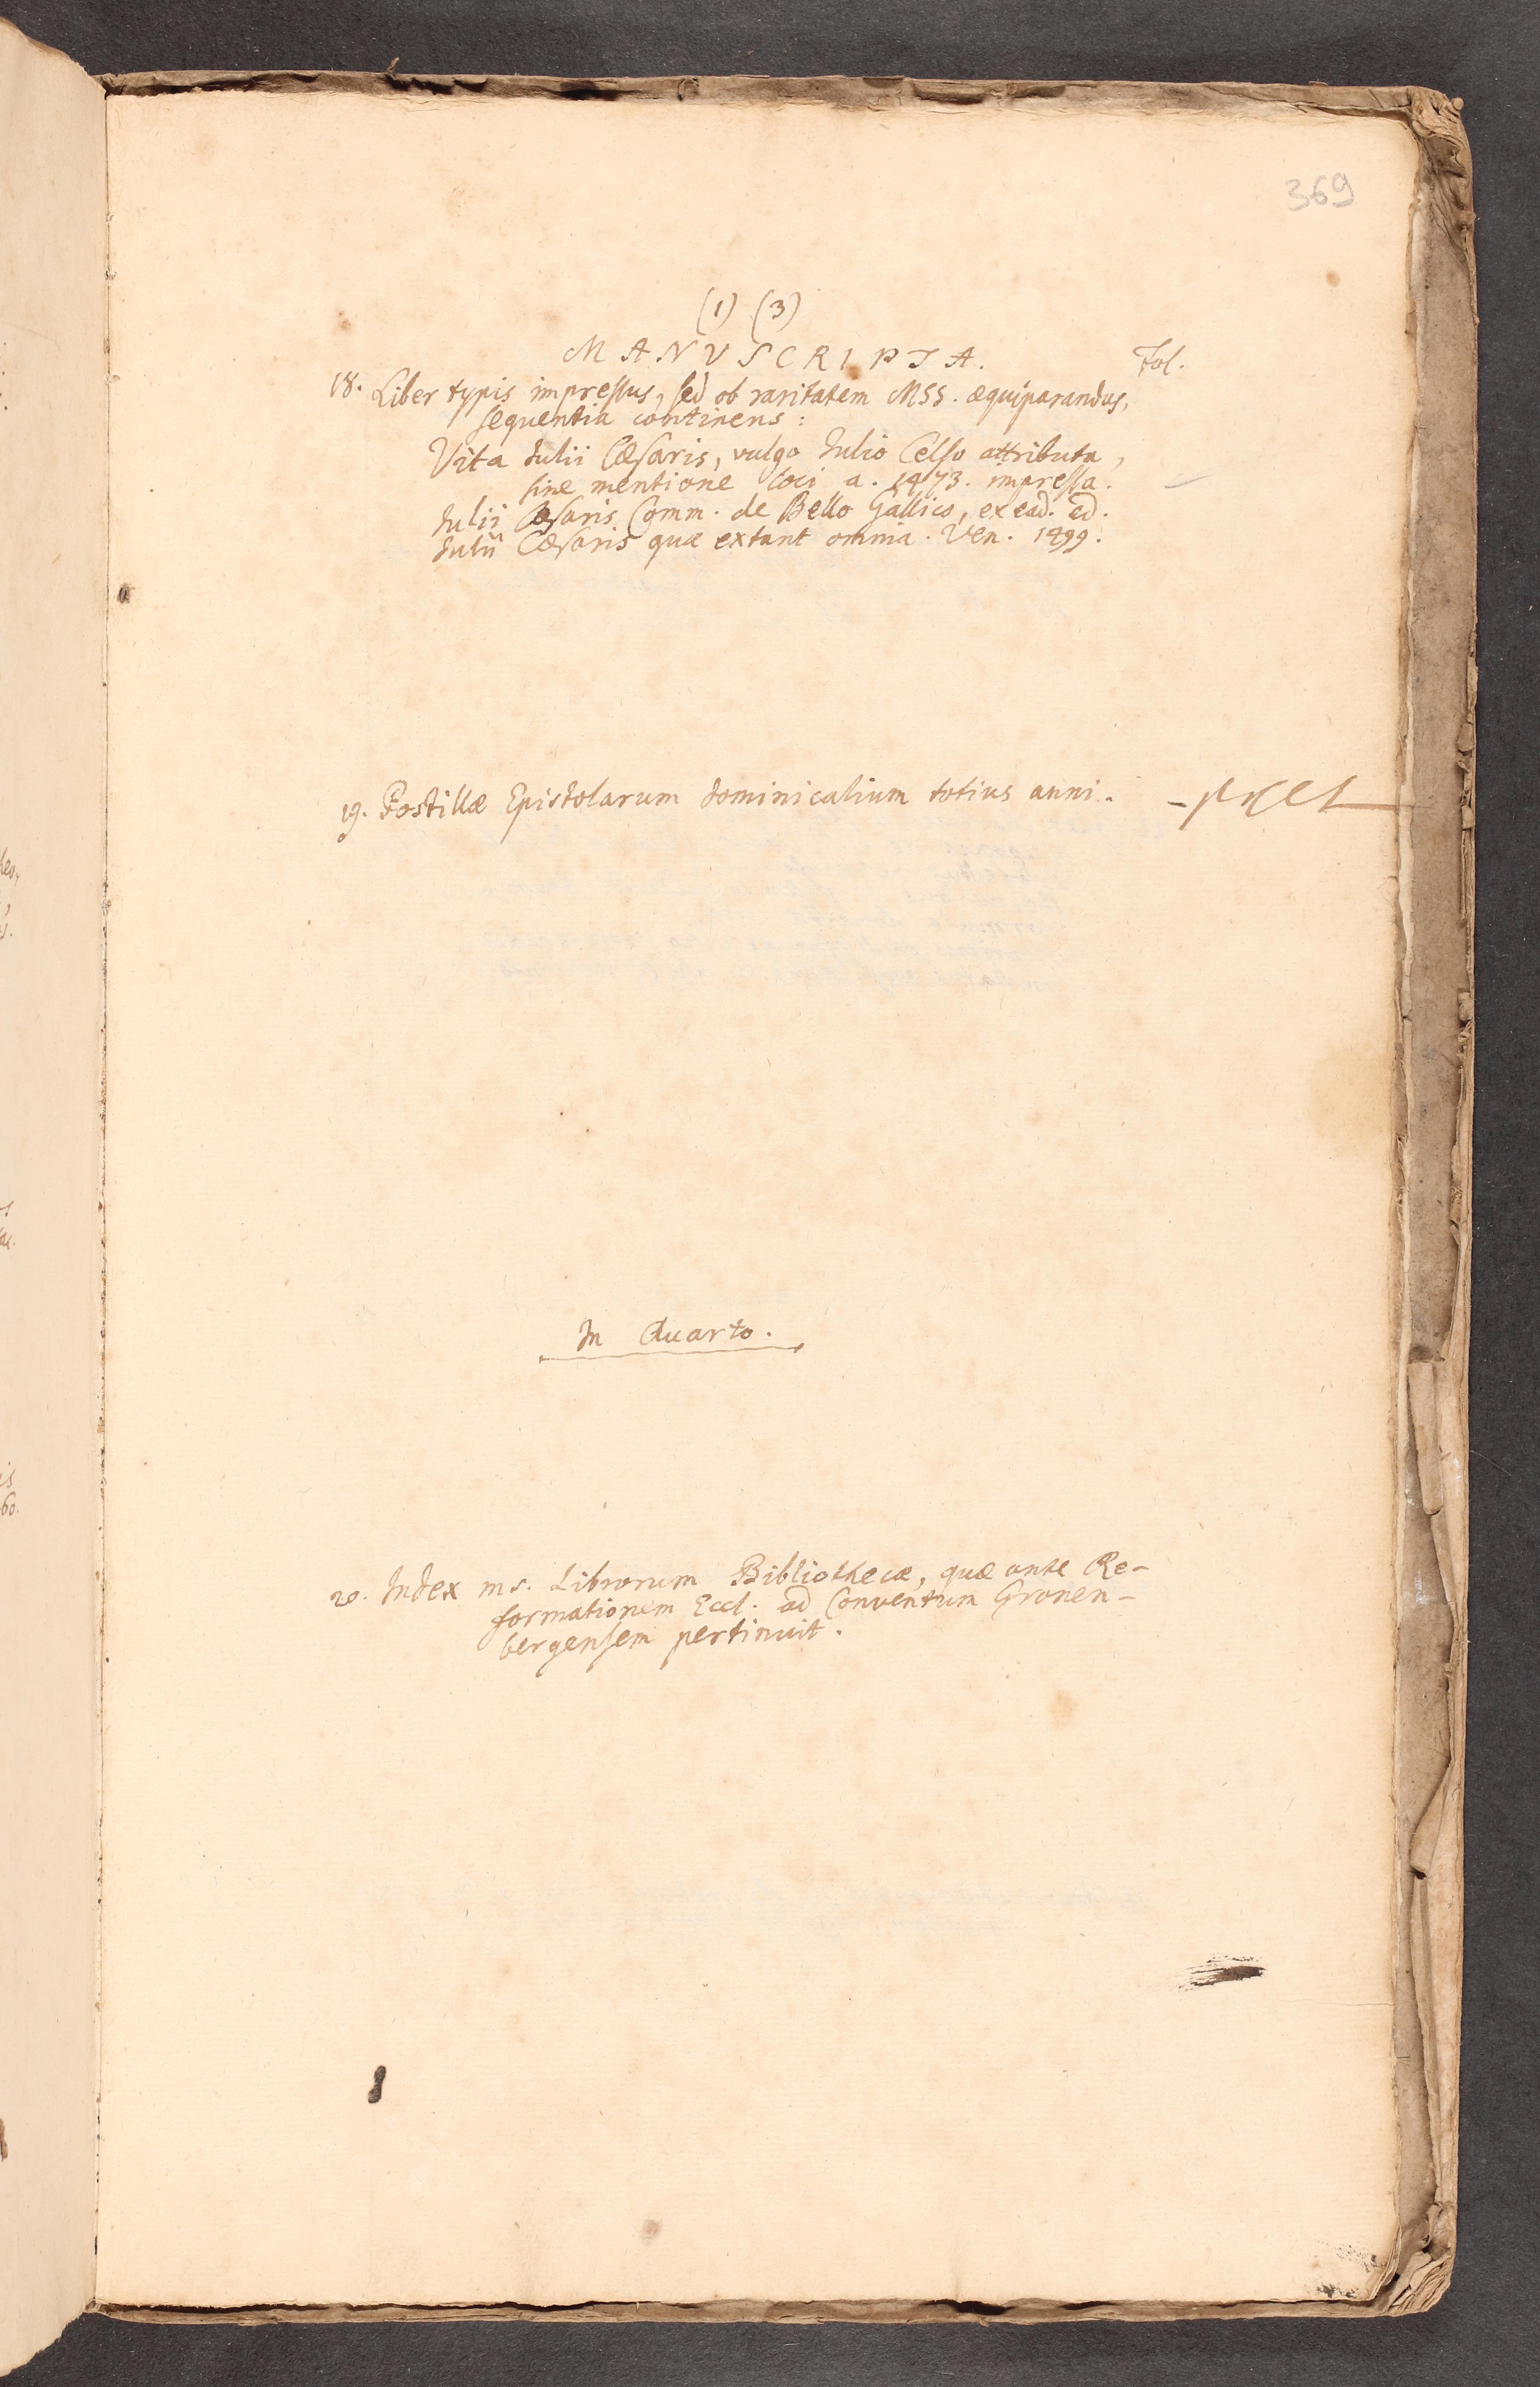 369
(1) (3)
MANVSCRIPTA. Fol.
18. Liber typis impressus, sed ob raritatem MSS. æquiparandus,
sequentia continens:
Vita Iulii Cæsaris, vulgo Iulio Celso attributa,
sine mentione loci a. 1473. impressa.
Iulii Cæsaris Comm. de Bello Gallico, ex ead. ed.
Iulii Cæsaris quæ extant omnia. Ven. 1499.
19. Postillæ Epistolarum dominicalium totius anni.
In Quarto.
20. Index ms. Librorum Bibliothecæ, quæ ante Re-
formationem Eccl. ad Conventum Gronen-
bergensem pertinuit.